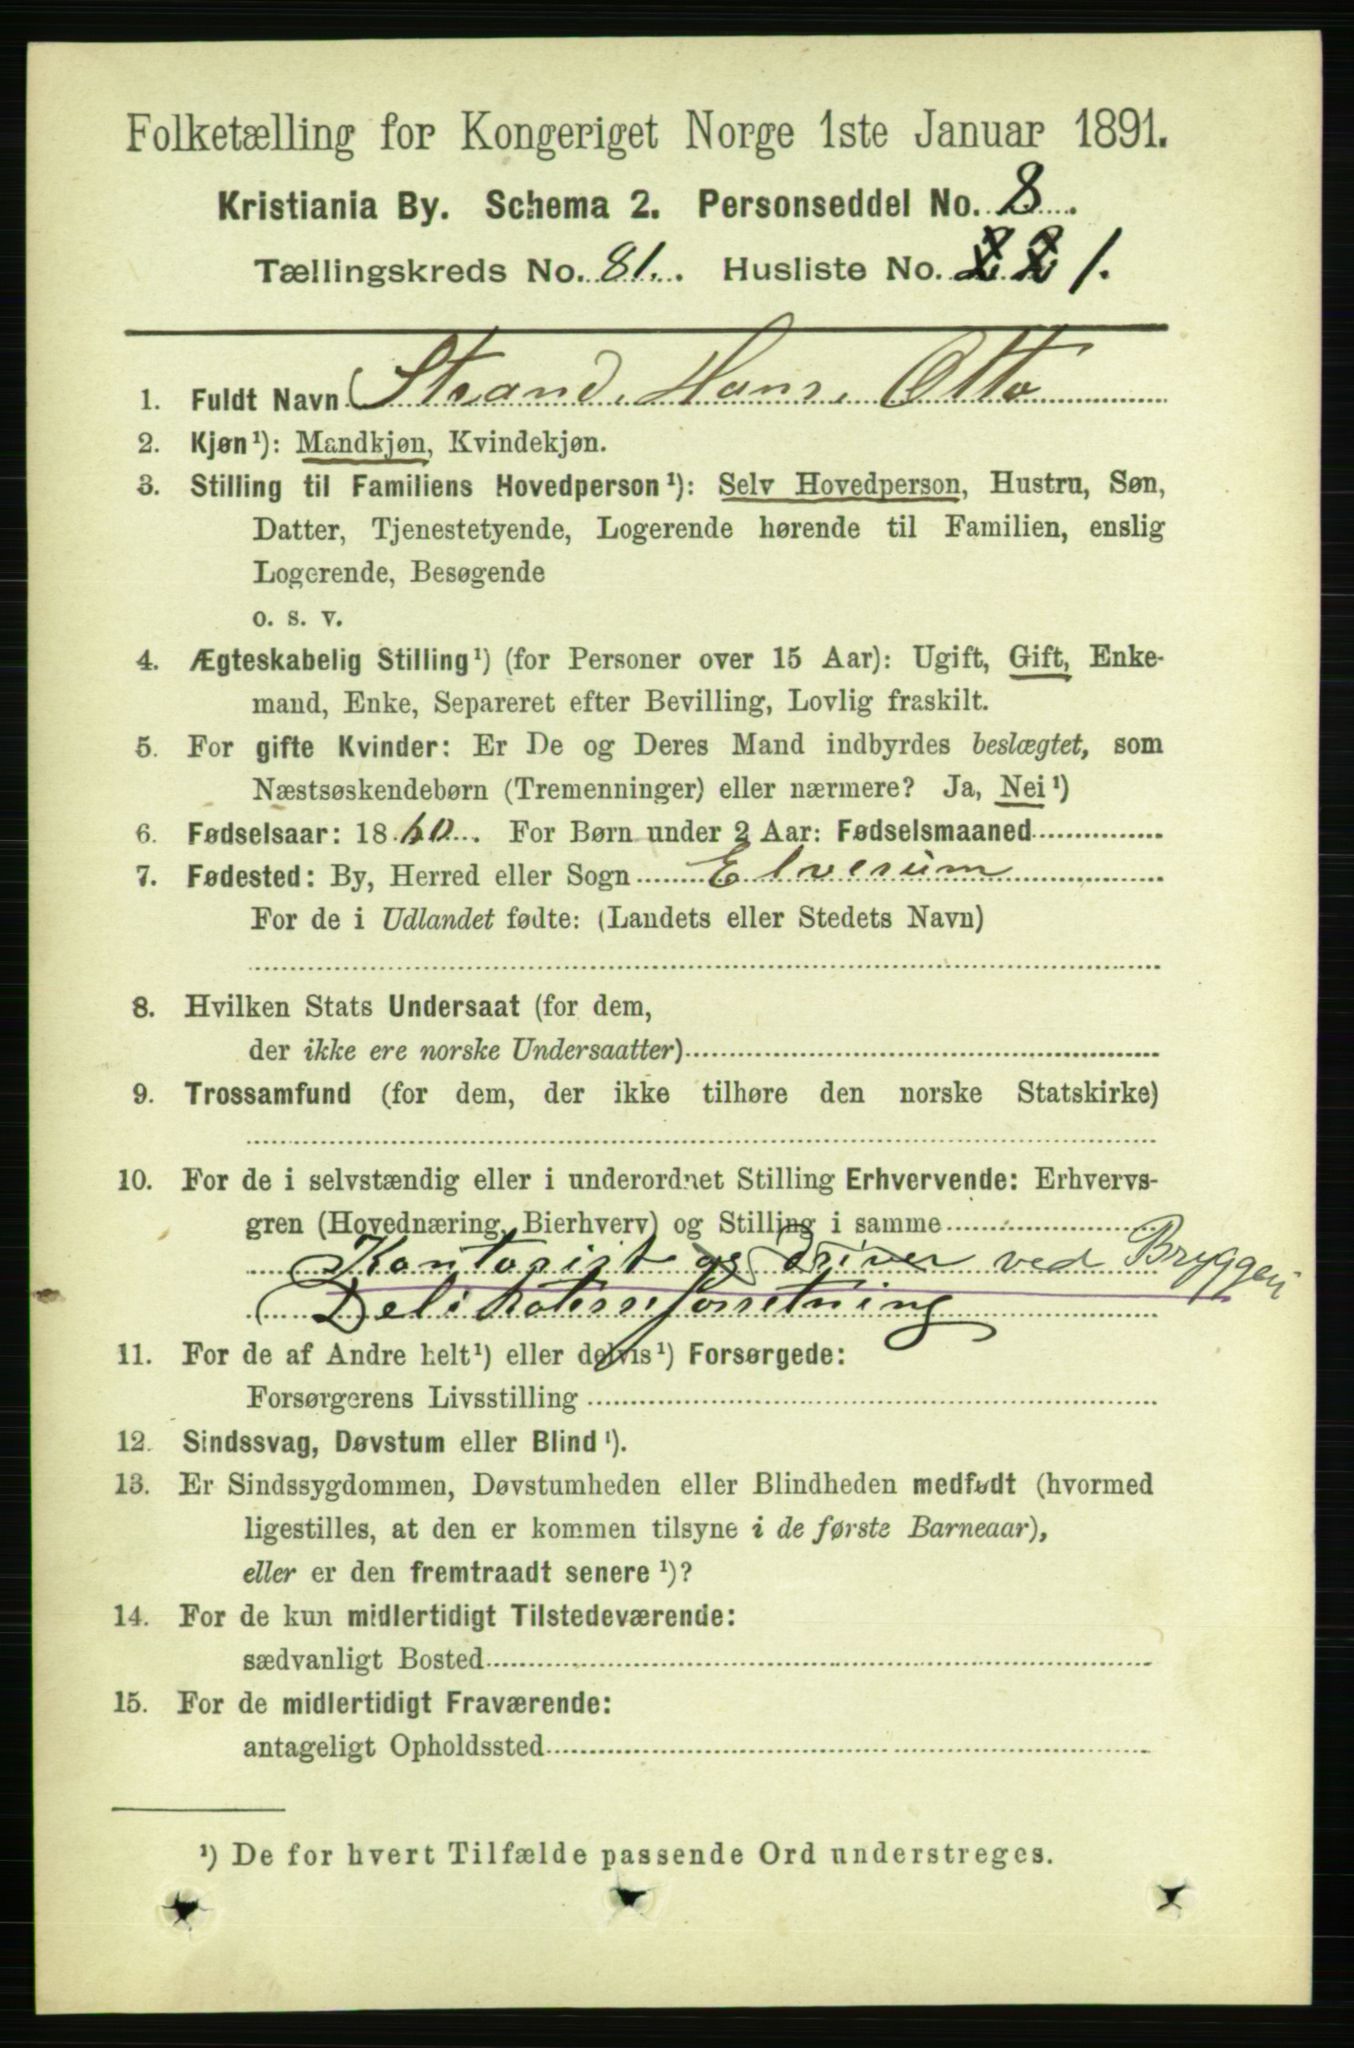 Folketælling for Kongeriget Norge 1ste Januar 1891.
Kristiania By. Schema 2. Personseddel No. 8.
Tællingskreds No. 81. Husliste No. 2 2 1.
1. Fuldt Navn Strand, Hans, Otto
2. Kjøn¹): Mandkjøn, Kvindekjøn.
3. Stilling til Familiens Hovedperson¹): Selv Hovedperson, Hustru, Søn,
Datter, Tjenestetyende, Logerende hørende til Familien, enslig
Logerende, Besøgende
o. s. v.
4. Ægteskabelig Stilling¹) (for Personer over 15 Aar): Ugift, Gift, Enke-
mand, Enke, Separeret efter Bevilling, Lovlig fraskilt.
5. For gifte Kvinder: Er De og Deres Mand indbyrdes beslægtet, som
Næstsøskendebørn (Tremenninger) eller nærmere? Ja, Nei¹)
6. Fødselsaar: 1860. For Børn under 2 Aar: Fødselsmaaned
7. Fødested: By, Herred eller Sogn Elverum
For de i Udlandet fødte: (Landets eller Stedets Navn)
8. Hvilken Stats Undersaat (for dem,
der ikke ere norske Undersaatter)
9. Trossamfund (for dem, der ikke tilhøre den norske Statskirke)
10. For de i selvstændig eller i underordnet Stilling Erhvervende: Erhvervs-
gren (Hovednæring, Bierhverv) og Stilling i samme
Kontorist og driver ved Bryggeri
Delikatesseforretning
11. For de af Andre helt¹) eller delvis¹) Forsørgede:
Forsørgerens Livsstilling
12. Sindssvag, Døvstum eller Blind¹).
13. Er Sindssygdommen, Døvstumheden eller Blindheden medfødt (hvormed
ligestilles, at den er kommen tilsyne i de første Barneaar),
eller er den fremtraadt senere¹)?
14. For de kun midlertidigt Tilstedeværende:
sædvanligt Bosted
15. For de midlertidigt Fraværende:
antageligt Opholdssted
¹) De for hvert Tilfælde passende Ord understreges.